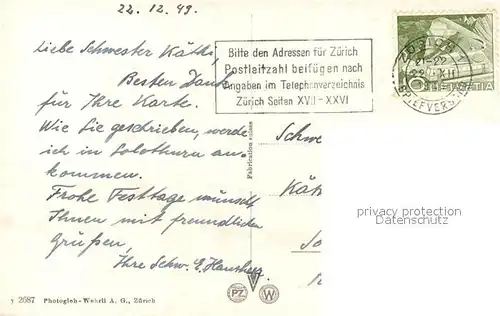 22. 12. 49.
Liebe Schwester Käthi,
Besten Dank
für Ihre Karte.
Wie Sie geschrieben, werde
ich in Solothurn an-
kommen.
Frohe Festtage wünscht
Ihnen mit freundlichen
Grüßen,
Ihre Schw. E.
Bitte den Adressen für Zürich
Postleitzahl beifügen nach
Angaben im Telephonverzeichnis
Zürich Seiten XVII - XXVI
ZÜRICH 1
21-22
22. XII
BRIEFVERS
HELVETIA
Fabrication suisse
Schwe
Kät
So
privacy protection
AnsichtskartenCenter
PZ
W
y 2687 Photoglob-Wehrli A. G., Zürich